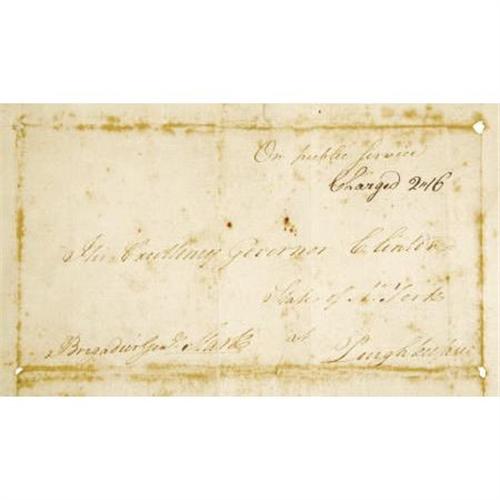 On public service
Charged 2"16
His Excellency Governor Clinton
State of N. York
Brigadier Gen.l Stark at Poughkeepsie